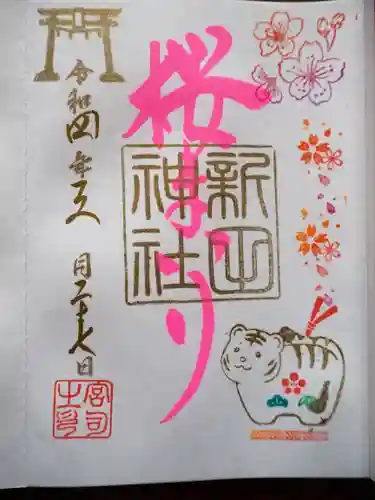 桜まつり
新田
神社
令和四年三月二十七日
宮司
之印